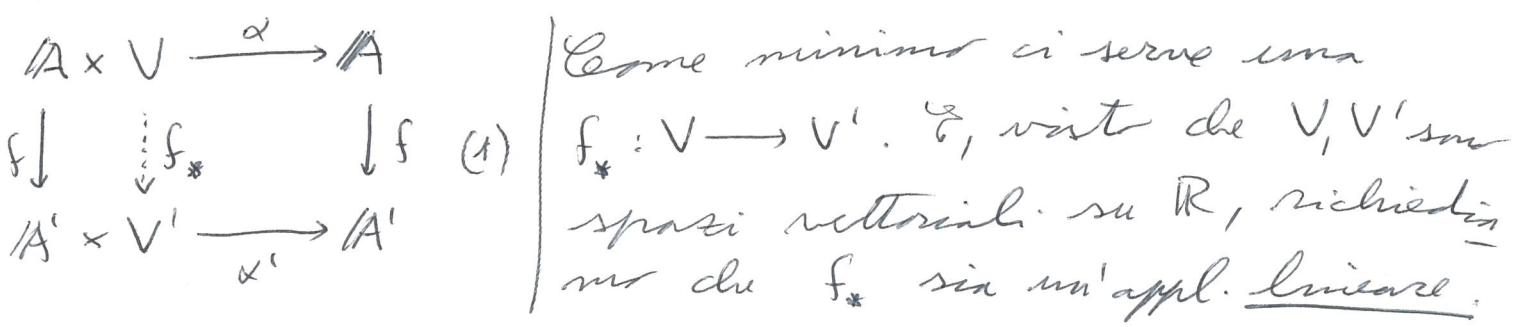 𝔸 × V —α→ 𝔸
f↓ ⇣f_* ↓f (1)
𝔸' × V' —α'→ 𝔸'
Come minimo ci serve una
f_* : V ⟶ V'. E, visto che V, V' sono
spazi vettoriali su ℝ, richiedia
mo che f_* sia un'appl. lineare.